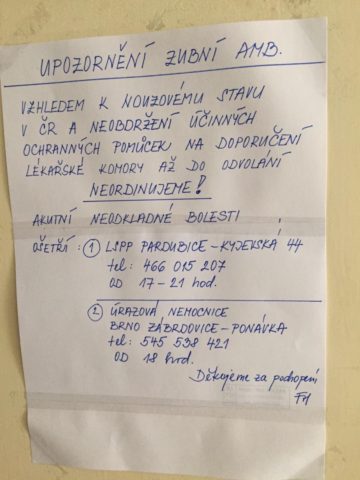 UPOZORNĚNÍ ZUBNÍ AMB.
VZHLEDEM K NOUZOVÉMU STAVU
V ČR A NEOBDRŽENÍ ÚČINNÝCH
OCHRANNÝCH POMŮCEK NA DOPORUČENÍ
LÉKAŘSKÉ KOMORY AŽ DO ODVOLÁNÍ
NEORDINUJEME!
AKUTNÍ NEODKLADNÉ BOLESTI
OŠETŘÍ: ① LSPP PARDUBICE - KYJEVSKÁ 44
tel: 466 015 207
OD 17-21 hod.
② ÚRAZOVÁ NEMOCNICE
BRNO ZÁBRDOVICE - PONÁVKA
tel: 545 538 421
OD 18 hod.
Děkujeme za pochopení